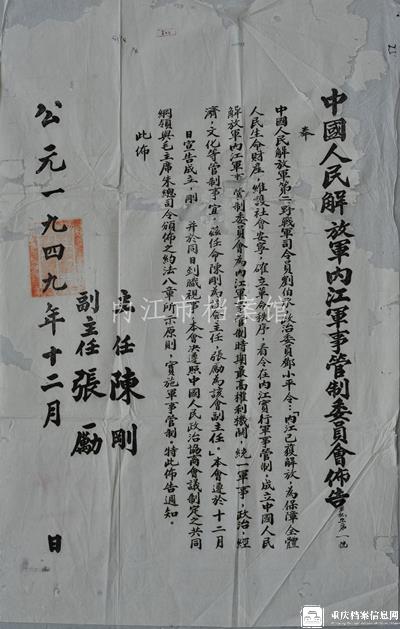 中國人民解放軍內江軍事管制委員會佈告
奉
中國人民解放軍第二野戰軍司令員劉伯承政治委員鄧小平令：「內江已獲解放，為保障全體
人民生命財產，維護社會安寧，確立革命秩序，着令在內江實行軍事管制，成立中國人民
解放軍內江軍事管制委員會為內江軍事管制時期最高權利機關，統一軍事，政治，經
濟，文化等管制事宜，茲任命陳剛為該會主任，張勵為該會副主任。」本會遵於十二月
日宣告成立，剛 並於同日到職視事。本會決遵照中國人民政治協商會議制定之共同
綱領與毛主席朱總司令頒佈之約法八章所示原則，實施軍事管制。特此佈告週知。
此佈
主任陳剛
副主任張勵
公元一九四九年十二月 日
内江市档案馆
重庆档案信息网